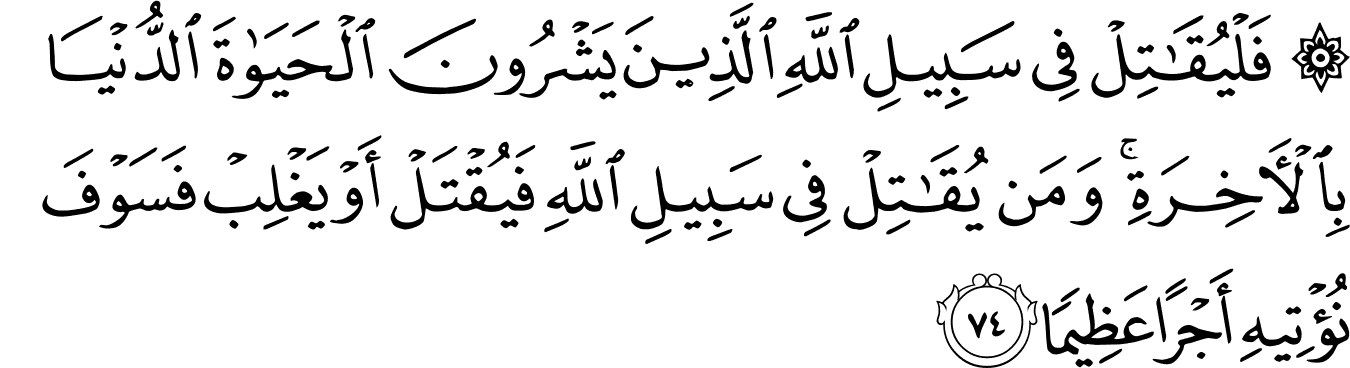 ۞ فَلۡيُقَٰتِلۡ فِي سَبِيلِ ٱللَّهِ ٱلَّذِينَ يَشۡرُونَ ٱلۡحَيَوٰةَ ٱلدُّنۡيَا
بِٱلۡأٓخِرَةِۚ وَمَن يُقَٰتِلۡ فِي سَبِيلِ ٱللَّهِ فَيُقۡتَلۡ أَوۡ يَغۡلِبۡ فَسَوۡفَ
نُؤۡتِيهِ أَجۡرًا عَظِيمٗا ٧٤